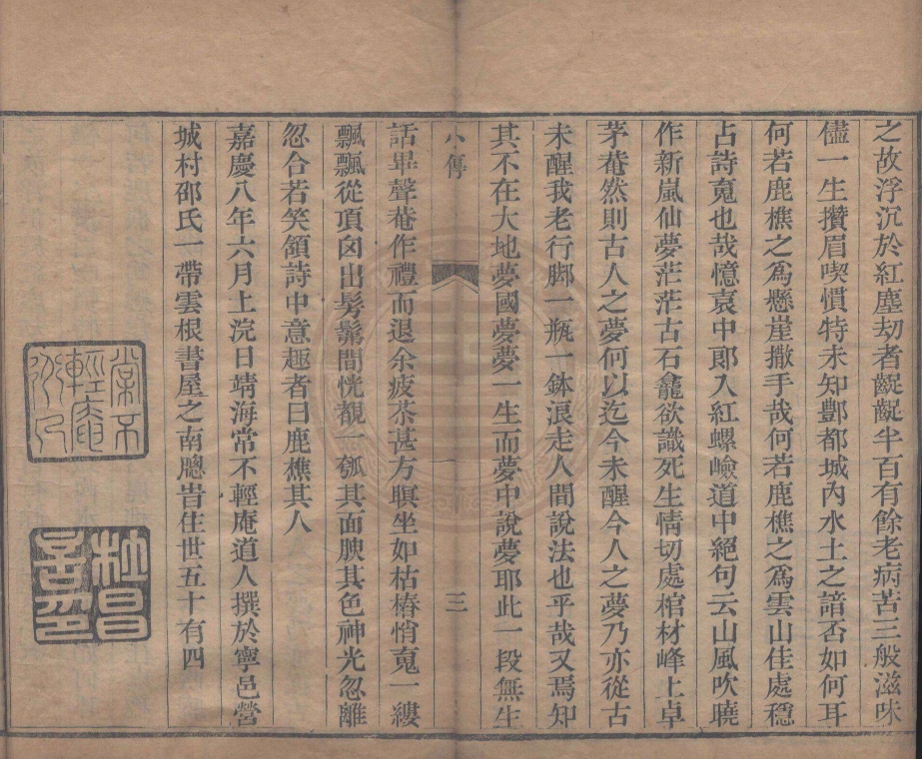 之故浮沉於紅塵刧者齪齪半百有餘老病苦三般滋味
儘一生攢眉喫慣特未知酆都城內水土之諳否如何耳
何若鹿樵之爲懸崖撒手哉何若鹿樵之爲雲山佳處穩
占詩䰟也哉憶袁中郎入紅螺嶮道中絕句云山風吹曉
作新嵐仙夢茫茫古石龕欲識死生情切處棺材峰上卓
茅菴然則古人之夢何以迄今未醒今人之夢乃亦從古
未醒我老行脚一瓶一鉢浪走人間說法也乎哉又焉知
其不在大地夢國夢夢一生而夢中說夢耶此一段無生
小傳
三
話畢聲菴作禮而退余疲苶甚方瞑坐如枯樁悄䰟一縷
飄飄從頂囟出髣髴間恍覩一瓠其面腴其色神光忽離
忽合若笑領詩中意趣者曰鹿樵其人
嘉慶八年六月上浣日靖海常不輕庵道人撰於寧邑營
城村邵氏一帶雲根書屋之南牕旹住世五十有四
常不
輕庵
杜昌